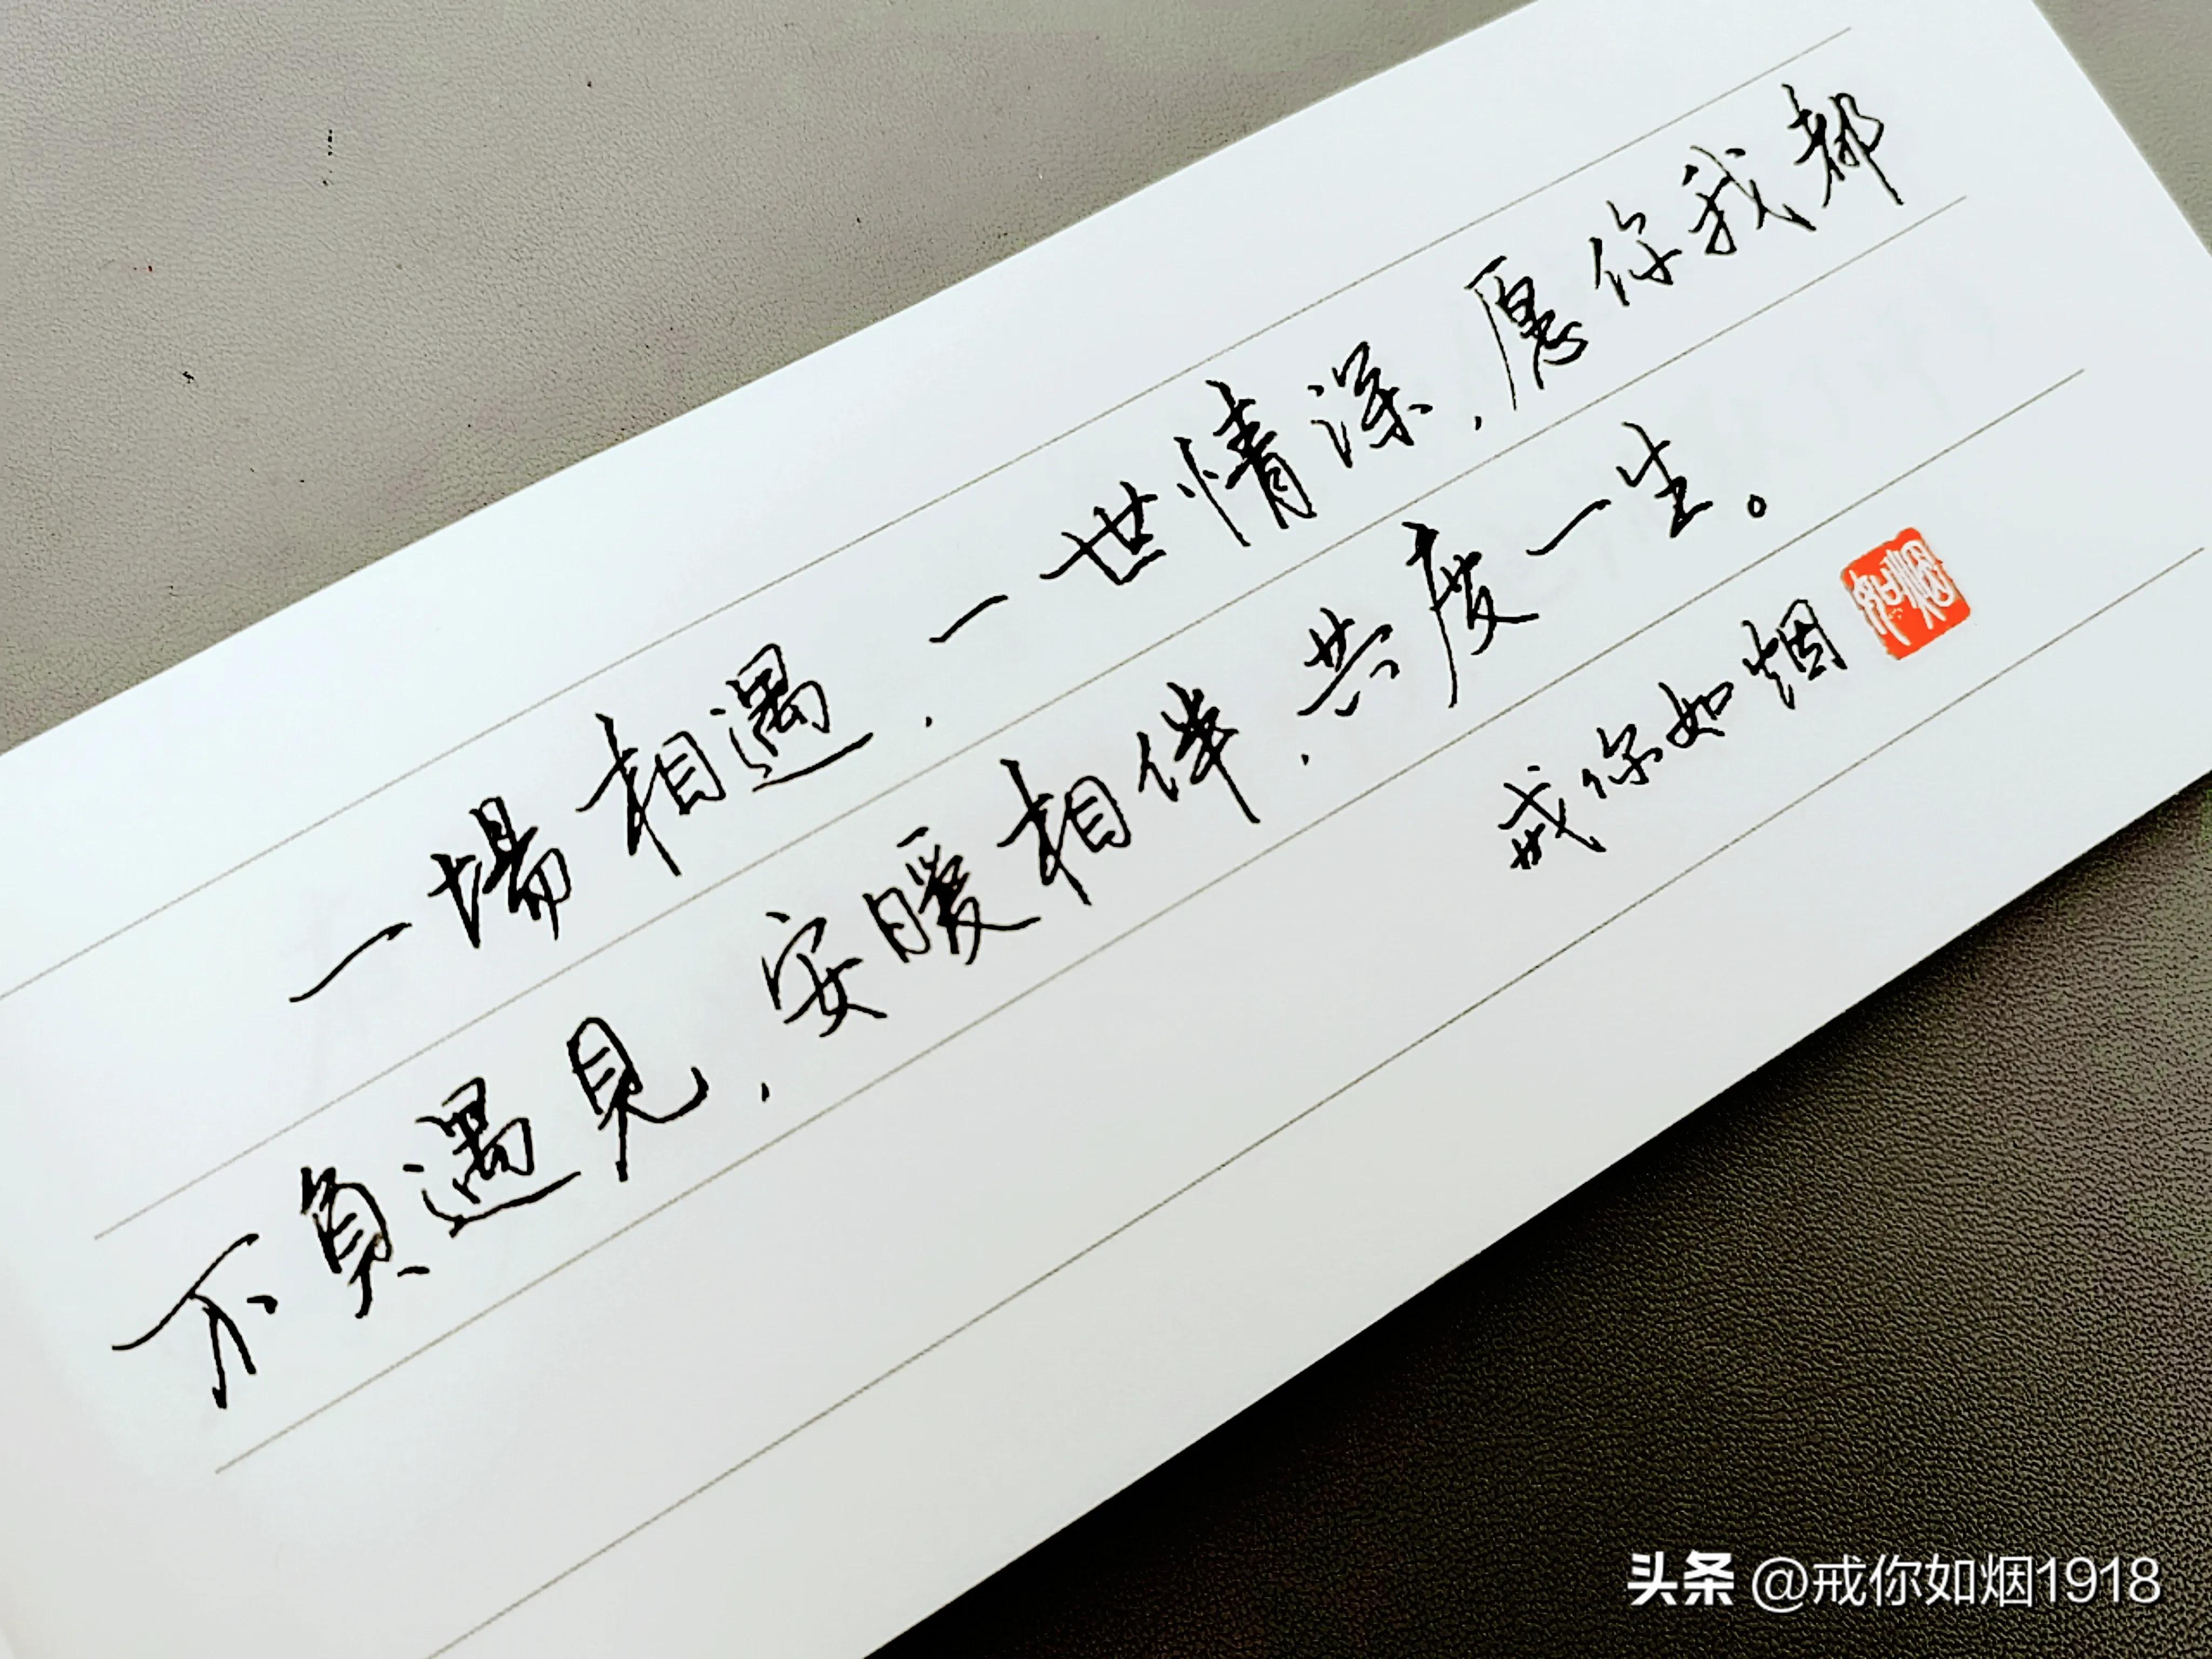 一場相遇，一世情深，愿你我都
不負遇見，安暖相伴，共度一生。
戒你如烟
如烟
头条 @戒你如烟1918